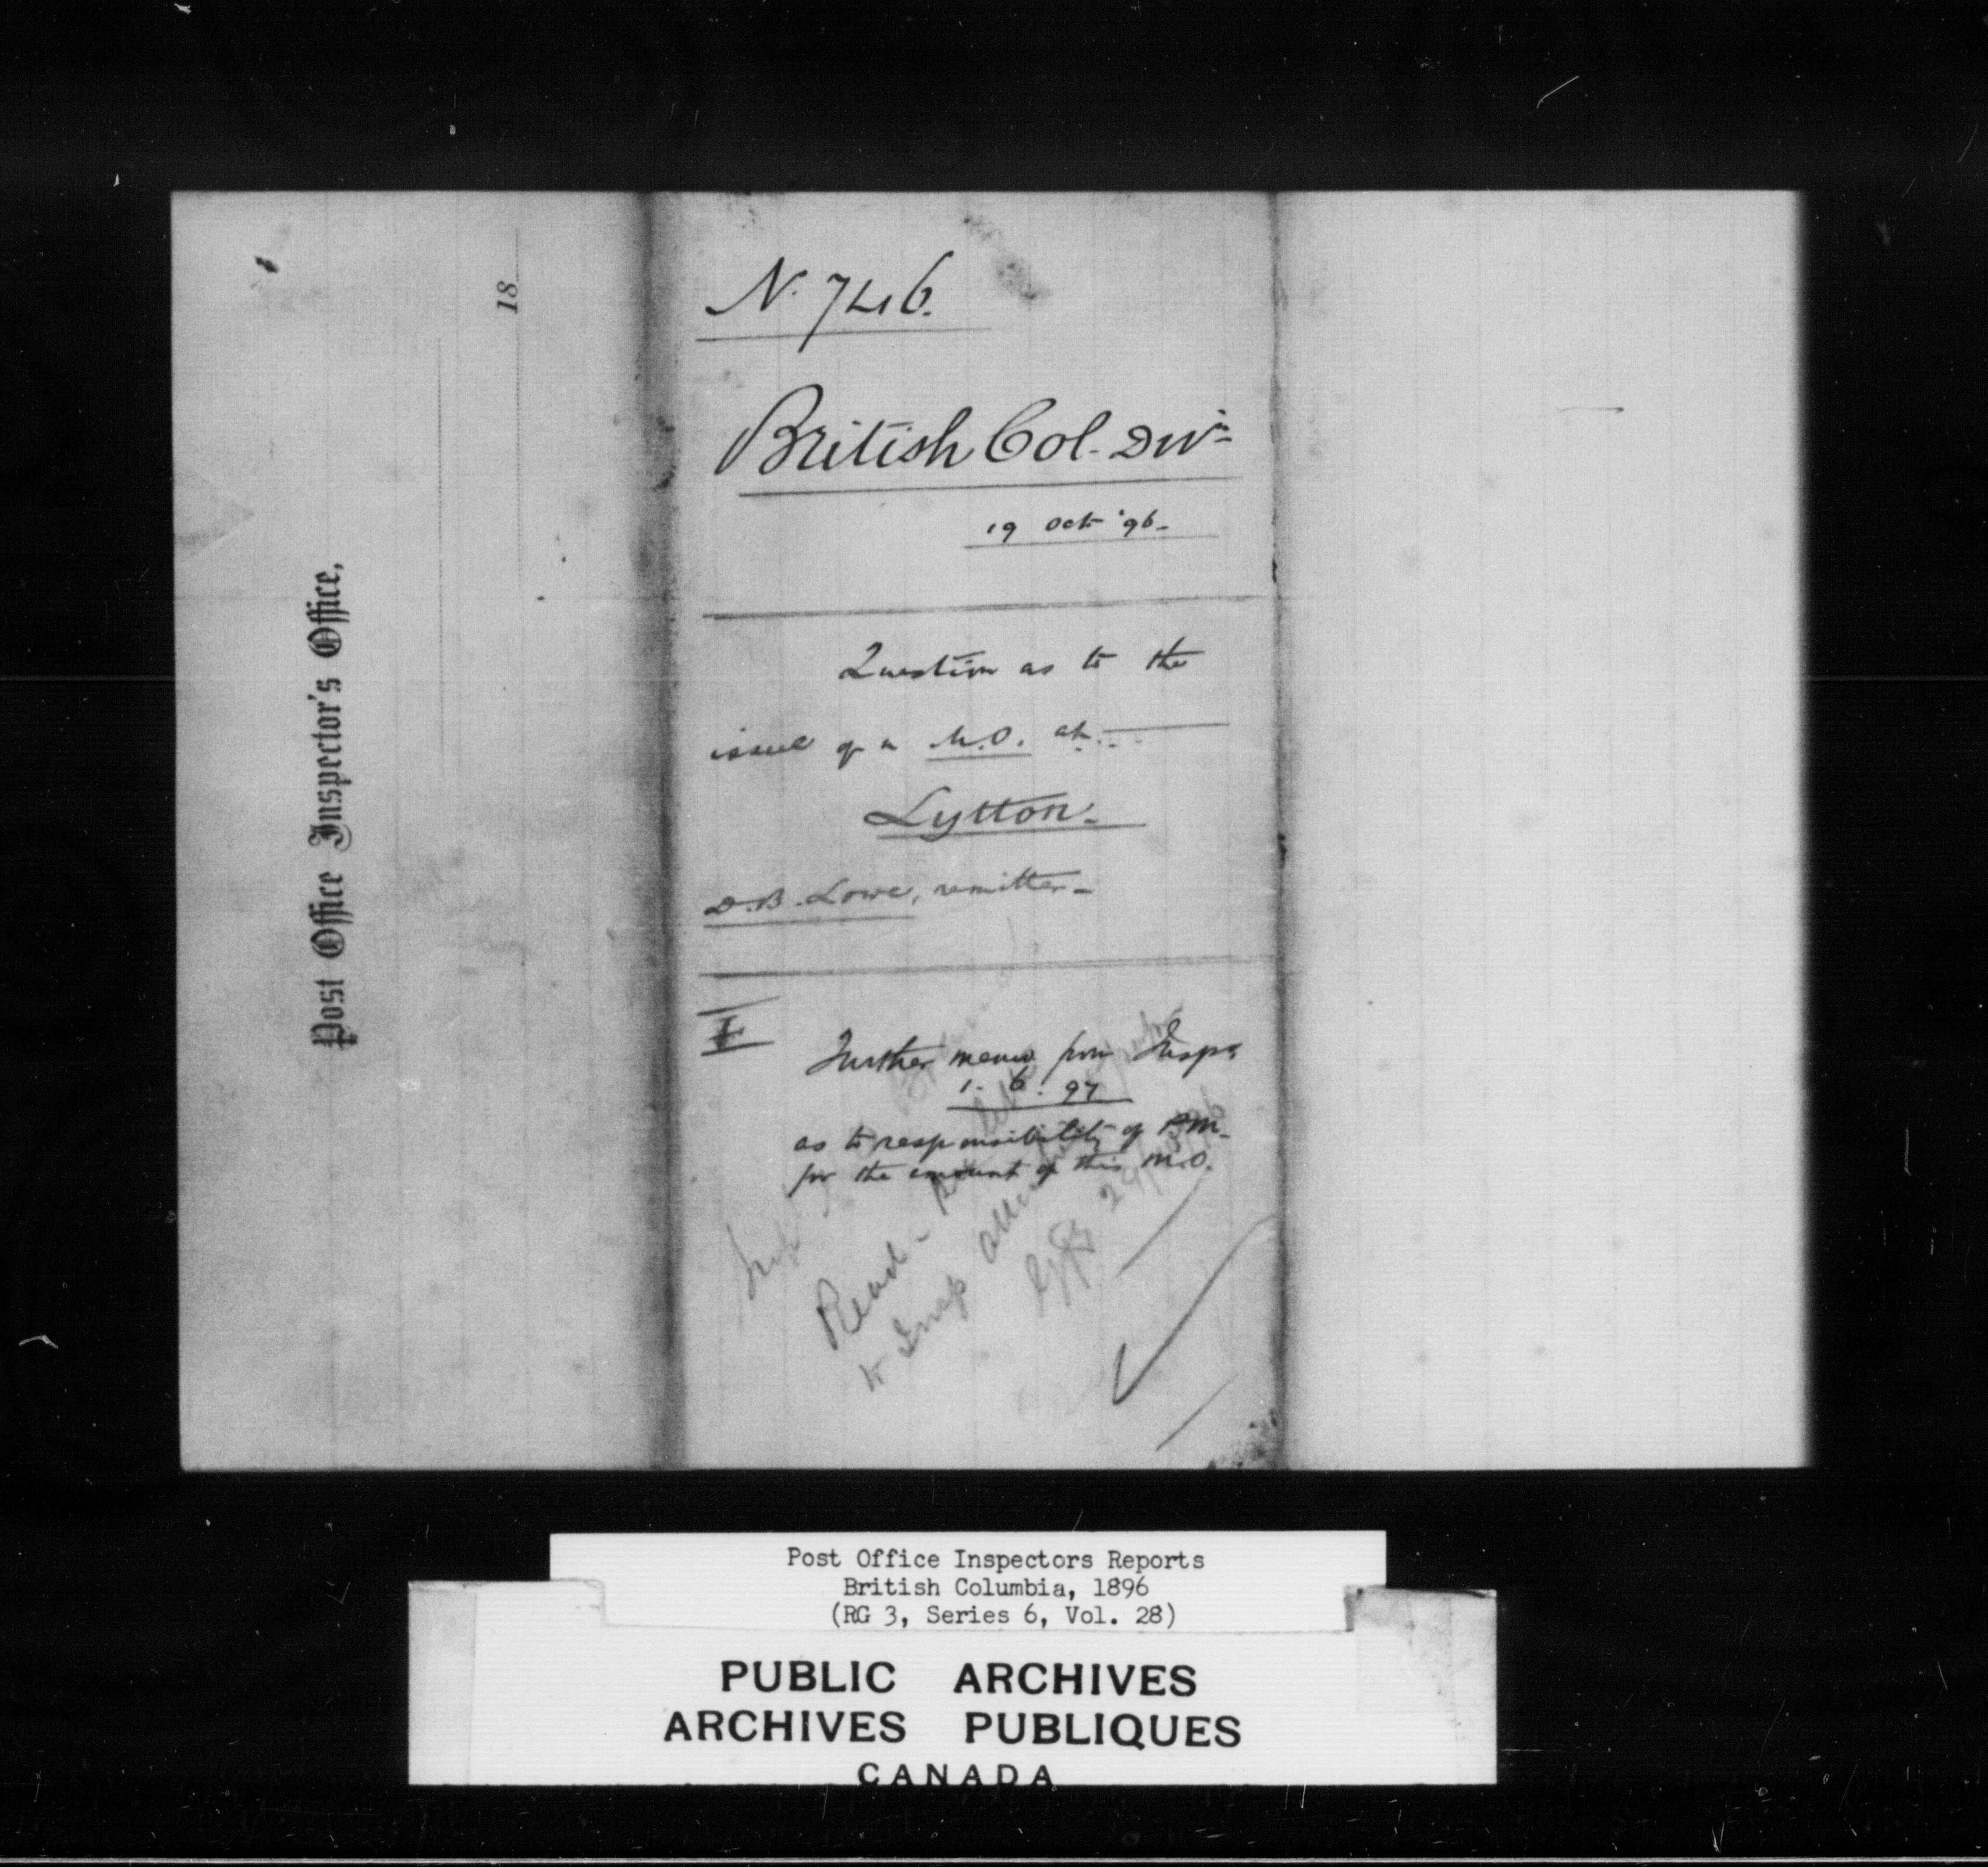 Post Office Inspector's Office,
18
N. 746.
British Col. Divn
19 Oct '96-
Question as to the
issue of a M.O. at
Lytton.
D.B. Lowe, remitter-
I
Further memo from Inspr
1. 6. 97
as to responsibility of P.M.
for the amount of this M.O.
Read -
to Insp
Post Office Inspectors Reports
British Columbia, 1896
(RG 3, Series 6, Vol. 28)
PUBLIC ARCHIVES
ARCHIVES PUBLIQUES
CANADA